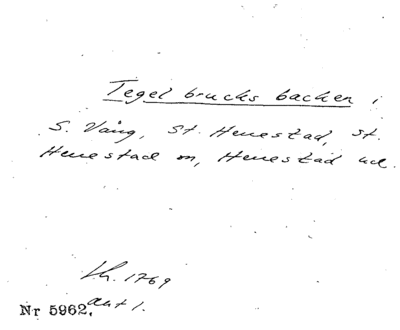 Tegel brucks backen i
S. Vång, St. Herrestad, St.
Herrestad sn, Herrestad hd.
Lh. 1769
akt 1.
Nr 5962,